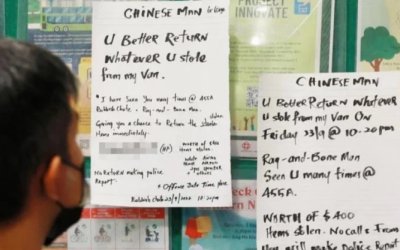 PROJECT
INNOVATE
CHINESE MAN
U Better RETURN
WHATEVER U stole
from my VAN.
* I have Seen You many times @ 455A
Rubbish Chute. * Rag-and-Bone Man
Giving you a chance to Return the stolen
items immediately.
(HP)
WORTH OF $400
Items stolen.
No RETURN making police
Report.
* Offence Date Time place
Rubbish Chute 23/9/2022 10.20pm
CHINESE MAN
U Better Return Whatever
U stole from my VAN ON
Friday 23/9 @ 10.20pm
Rag-and-Bone Man
Seen U many times @
455A.
WORTH OF $400
Items stolen. No Calls From
You will make Police Report